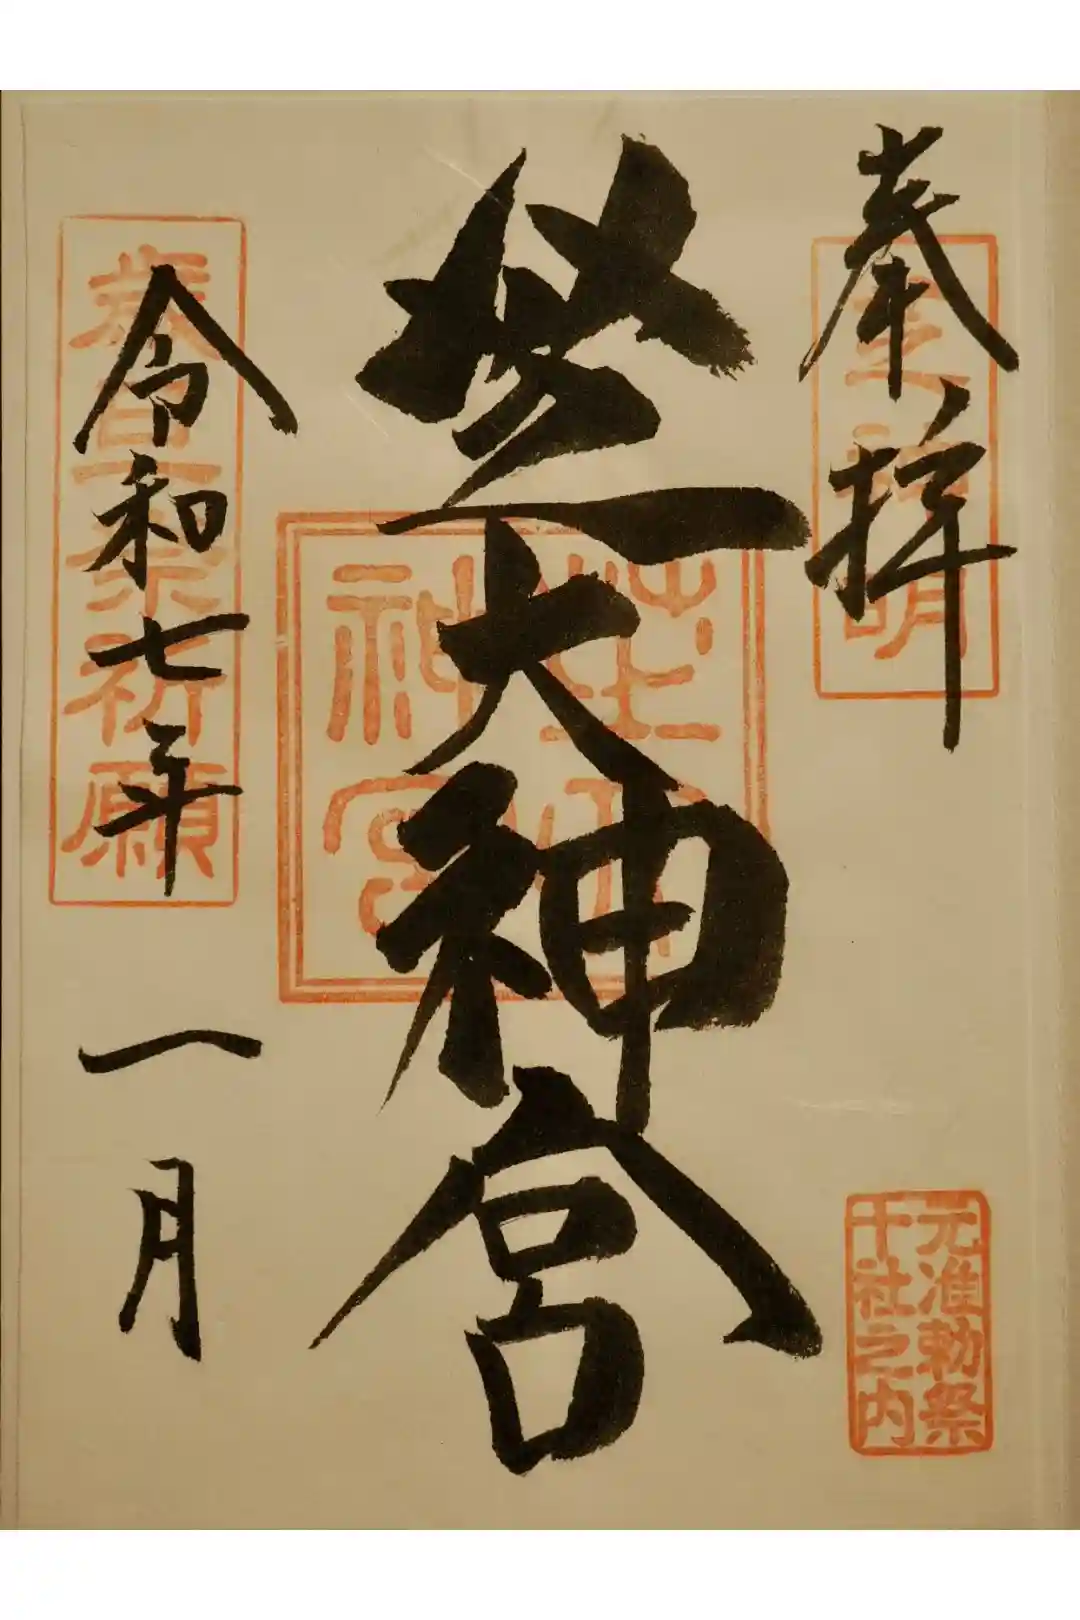 奉拝
芝神明
元准勅祭
十社之内
芝大神宮
芝大
神宮
令和七年一月
歳旦祭祈願